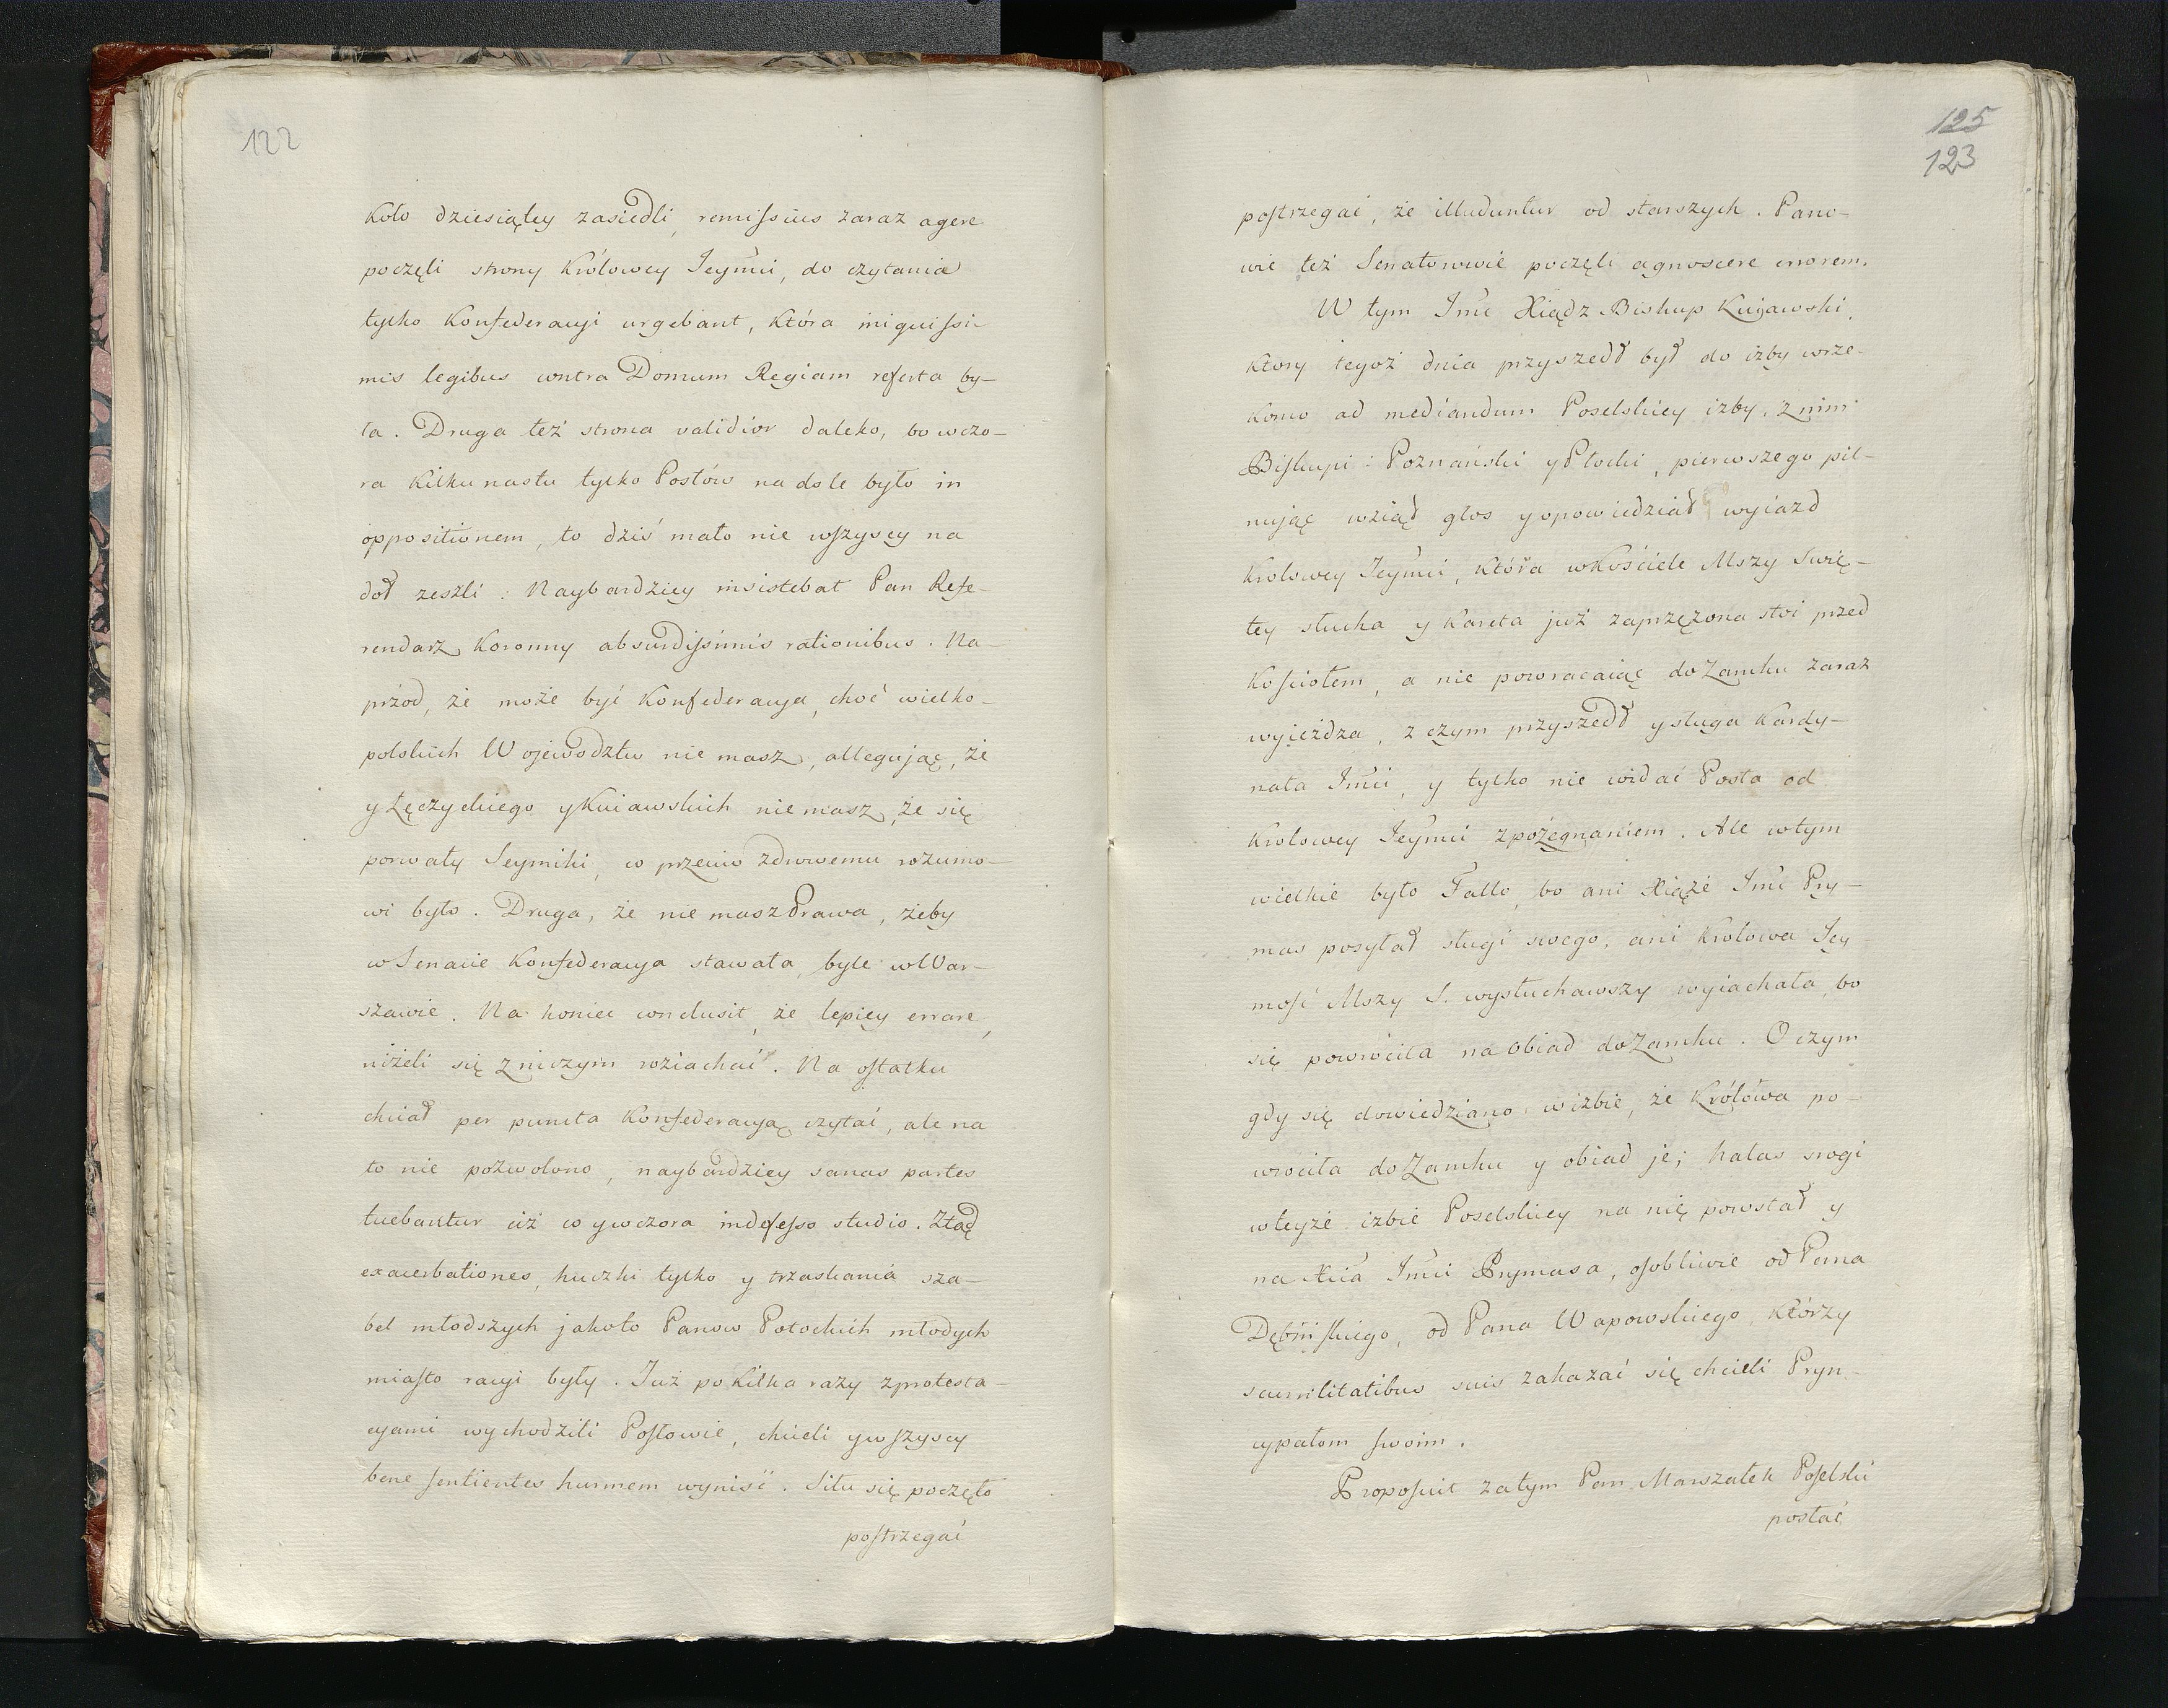 122
Koło dziesiątey zasiedli, remiſsius zaraz agere
poczęli strony Krolowey Jeymći, do czytania
tylko Konfederacyi urgebant, która iniquiſsi-
mis legibus contra Domum Regiam referta by-
ła. Druga też strona validior daleko, bo wczo-
ra Kilkunastu tylko Posłów na dole było in
oppositionem, to dziś mało nie wſzyscy na
doł zeszli. Naybardziey insistebat Pan Refe-
rendarz Koronny absurdiſsimis rationibus. Na-
przod, że może być Konfederacya, choć wielko-
polskich Wojewodztw nie masz, allegując, że
y Łęczyckiego y Kuiawskich nie masz, że się
porwały Seymiki, co przeciw zdrowemu rozumo-
wi było. Druga, że nie masz Prawa, żeby
w Senacie Konfederacya stawała, byle w War-
szawie. Na koniec conclusit, że lepiey errare,
niżeli się z niczym roziachać. Na oſtatku
chciał per puncta Konfederacyą czytać, ale na
to nie pozwolono, naybardziey sanas partes
tuebantur ciż co y wczora indefeſso studio. Ztąd
exacerbationes, huczki tylko y trzaskania sza-
bel młodszych jakoto Panow Potockich młodych
miaſto racyi były. Już po Kilka razy z protesta-
cyami wychodzili Poſłowie, chcieli y wſzyscy
bene ſentientes hurmem wynisć. Situ się poczęło
poſtrzegać
125
123
poſtrzegać, że illuduntur od starszych. Pano-
wie też Senatorowie poczęli agnoscere errorem.
W tym Jmć Xiądz Biskup Kujawski,
Ktory tegoż dnia przyszedł był do izby wrze-
komo ad mediandum Poselskiey izby, z nim
Biſkupi: Poznański y Płocki, pierwszego pil-
nując wziął głos y opowiedział wyiazd
Krolowey Jeymći, która w Kościele Mszy Swię-
tey słucha y Kareta już zaprzężona stoi przed
Koſciołem, a nie powracaiąc do Zamku zaraz
wyieżdza, z czym przyszedł y sługa Kardy-
nała Jmći, y tylko nie widać Posła od
Krolowey Jeymći z pożegnaniem. Ale w tym
wielkie było Fallo, bo ani Xiąże Jmć Pry-
mas posyłał sługi swego, ani Krolowa Jey-
moſć Mszy S. wysłuchawszy wyiachała, bo
się powróciła na obiad do Zamku. O czym
gdy się dowiedziano w izbie, że Królowa po-
wrociła do Zamku y obiad je; hałas srogi
w teyże izbie Poselskiey na nię powstał y
na Xcia Jmći Prymasa, oſobliwie od Pana
Dębińſkiego, od Pana Wapowskiego, Którzy
scurrilitatibus suis zakazać się chcieli Pryn-
cypałom ſwoim.
Propoſuit zatym Pan Marszałek Poſelski
posłać